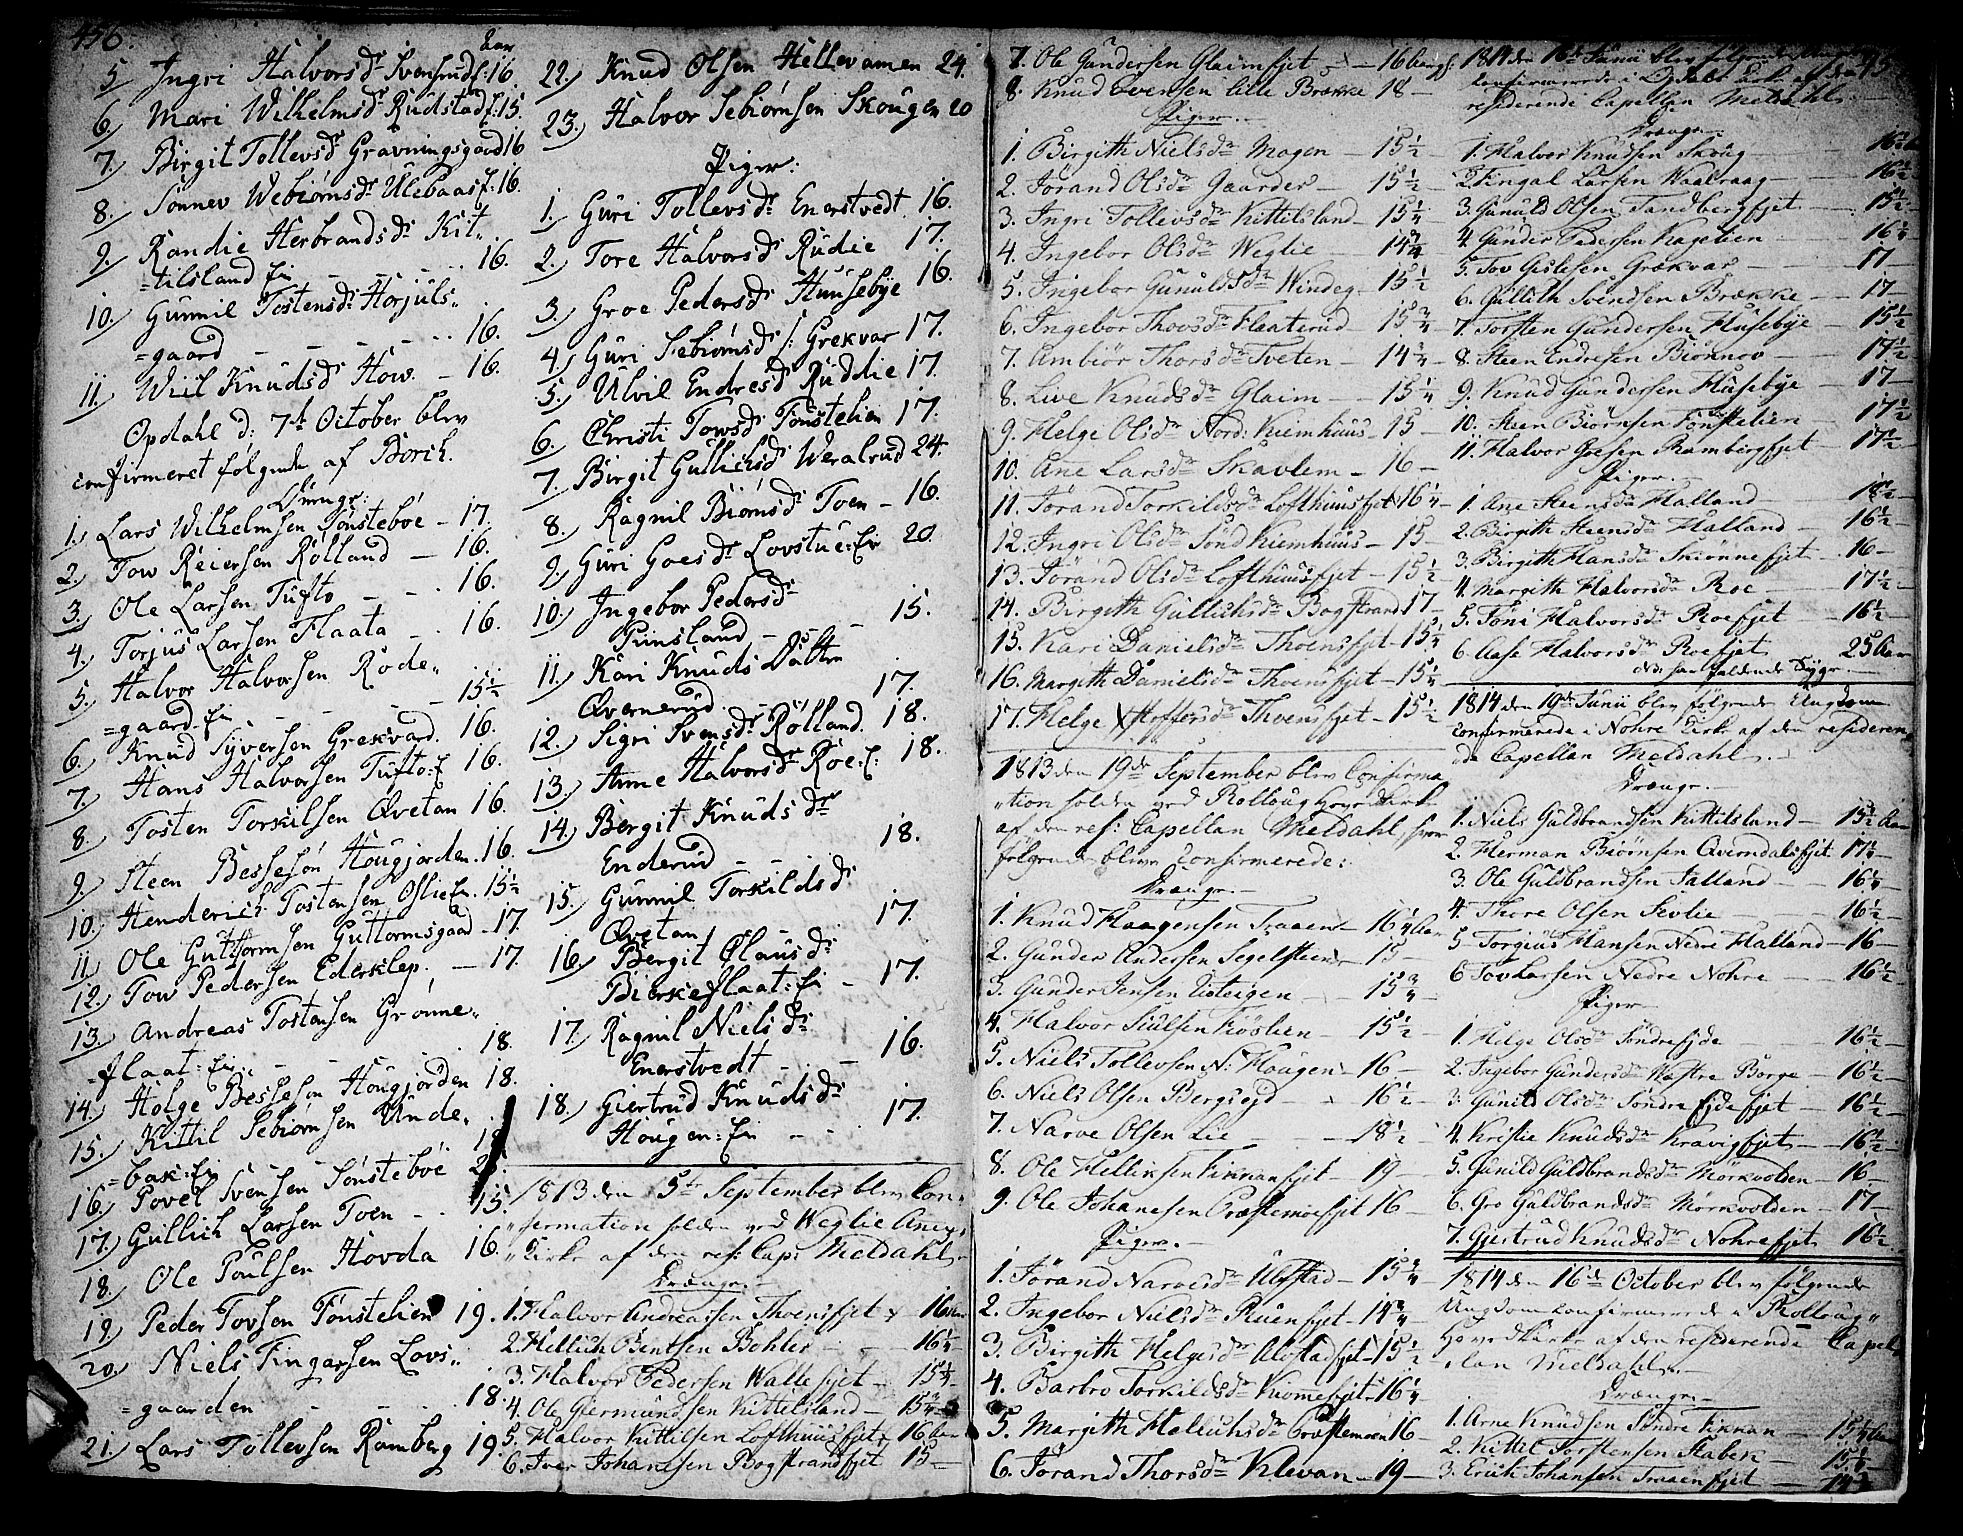 456.
Aar
5 Ingri Halvorsdr Svensrudf: 16
6. Mari Wilhelmsdr Rudstadf: 15.
7. Birgit Tollevsdr Gravningsgaard 16
8. Sønnev Webiørnsdr Ulebaasf: 16.
9. Randie Herbrandsdr Kit-
=tilsland Ei - - - 16.
10. Gunnil Tostensdr Horjuls-
=gaard - - - - 16.
11. Wiil Knudsdr How. - 16.
Opdahl d: 7de October blev
confirmeret følgende af Borch.
Drenge:
1. Lars Wilhelmsen Tønsteböe - 17.
2. Tow Reiersen Rølland - 16.
3. Ole Larsen Tufto - - 16.
4. Torjus Larsen Flaata - 16.
5. Halvor Halvorsen Rode-
=gaard. Ei - - - 15½
6. Knud Syversen Grekvard. 16.
7. Hans Halvorsen Tufto: E 16.
8. Tosten Torkilsen Qvetan 16.
9. Steen Bessesøn Hougjorden. 16.
10. Henderich Tostensen Oslie Ei. 15½
11. Ole Guttormsen Guttormsgaad - 17.
12. Tow Pedersen Ederklep. - 17.
13. Andreas Tostensen Grønne-
=flaat: Ei - - - 18.
14. Holge Bessesøn Hougjorden 18.
15. Kittil Sebiørnsen Unde-
=bak: Ei
16. Povel Svensen Sønsteböe
17. Gullich Larsen Toen - - 15.
18. Ole Poulsen Hovda 16.
19. Peder Tovsen Fønstelien 19.
20. Niels Fingarsen Lovs-
=gaarden - - - 18.
21. Lars Tollevsen Ramberg 19.
22. Knud Olsen Hellevamen 24.
23. Halvor Sebiørnsen Skougen 20
Piger:
1. Guri Tollevsdr Enerstvedt 16.
2. Tore Halvorsdr Rudie 17.
3. Groe Pedersdr Huusebÿe 16.
4. Guri Sebiørnsdr /: Grekvar 17.
5. Ulvil Endresdr Ruddie 17.
6. Christi Towsdr Fønstelien 17.
7. Birgit Gullichsdr Weralrud 24.
8. Ragnil Biørnsdr Toen - 16.
9. Guri Goesdr Lovstue: Ei 20.
10. Ingebor Pedersdr
Piinsland - - - 15.
11. Kari Knudsdatter
Øvernerud - - 17.
12. Sigri Svensdr Rølland. 18.
13. Anne Halvorsdr Roe: E: 18.
14. Bergit Knudsdr
Enderud 18.
15. Gunnil Torkildsdr
Qvetan 17.
16. Bergit Clausdr
Bierkeflaat: Ei - 17.
17. Ragnil Nielsdr
Enerstvedt - - 16.
18. Giertrud Knudsdr
Hougen: Ei - - 17.
1813 den 5te September blev Con-
„fermation holden ved Weglie Anex-
„Kirke af den res: Cap: Meldahl.
Drænge. -
1. Halvor Andreassen Thoensfjet - 16 aar
2. Hellich Bentsen Bohler - - 16¼
3. Halvor Pedersen Wallefjet - 15¼
4. Ole Giermundsen Kittilsland - 15¾
5. Halvor Kittilsen Lofthuusfjet 16 aar
6. Iver Johannesen Bogstrandfjet 15 -
7. Ole Gundersen Glaimfjet - 16
8. Knud Evensen lille Brække 18 -
Piger. -
1. Birgith Nielsdr Mogen - 15½
2. Jørand Olsdr Gaarder - 15½
3. Ingri Tollevsdr Kittilsland - 15¼
4. Ingebor Olsdr Weglie - 14¾
5. Ingebor Gunuldsdr Windeg - 15½
6. Ingebor Thovsdr Fleaterud - 15¾
7. Ambiør Thorsdr Tveten - 14¾
8. Live Knudsdr Glaim - 15¼
9. Helge Olsdr Nord: Kiemhuus - 15 -
10. Ane Larsdr Skavlem - 16 -
11. Jørand Torkildsdr Lofthuusfjet 16¼
12. Ingri Olsdr Sønd Kiemhuus - 15 -
13. Jørand Olsdr Lofthuusfjet - 15½
14. Birgith Gullichsdr Bogstrand 17 -
15. Kari Danielsdr Thoensfjet - 15¼
16. Margith Danielsdr Thoensfjet - 15¼
17. Helge Hoffersdr Thoensfjet - 15½
1813 den 19de September blev Confirma
„tion holden ved Rolloug Hovedkirke
af den res: Capellan Meldahl, hvor
følgende bleve confirmerede:
Drænge. -
1. Knud Haagensen Traaen - 16¼ aar
2. Gunder Andersen Segelsteen - 15 -
3. Gunder Jensen Uoteigen - 15¾
4. Halvor Siulsen Fiöslien - 15½
5. Niels Tollevsen N: Hougen - 16 -
6. Niels Olsen Bergsejd - 16½
7. Narve Olsen Lie - - 18½
8. Ole Helliksen Finnanfjet - 19 -
9. Ole Johanesen Præstemoefjet 16 -
Piger. -
1. Jørand Narvesdr Ulfstad - 15¾
2. Ingebor Nielsdr Ruenfjet - 14¾
3. Birgith Helgesdr Ulvstadfjet - 15½
4. Barbro Torkildsdr Kiomefjet 16¼
5. Margith Hellichsdr Præstemoen 16 -
6. Jørand Thorsdr Kleven - 19 -
1814 den 16de Junii blev følgende Ungdom
confirmerede i Opdals Kirke af den
residerende Capellan Meldahl.
Drænge.
1. Halvor Knudsen Skoug - 16½
2. Fingal Larsen Waalraag - 16½
3. Gunuld Olsen Tandbergfjet - 15½
4. Gunder Pedersen Kagelien - 16¼
5. Tov Gislesen Grækvar - 17
6. Gullith Svendsen Brække - 17 -
7. Torsten Gundersen Husebÿe - 15½
8. Steen Endresen Biørknov - 17½
9. Knud Gundersen Husebÿe - 17 -
10. Steen Biørnsen Fønstelien - 17½
11. Halvor Goesen Rambergfjet - 17½
Piger. -
1. Ane Steensdr Halland - 18½
2. Birgith Steensdr Halland - 16½
3. Birgith Hansdr Skiønnefjet - 16 -
4. Margith Halvorsdr Roe - 17½
5. Tøni Halvorsdr Roefjet - 16½
6. Aase Halvorsdr Roefjet 25 Aar
1814 den 19de Junii blev følgende Ungdom
confirmerede i Nohre Kirke af den residere
nde Capellan Meldahl. -
Drænge. -
1. Niels Guldbrandsen Kittilsland - 15½ aar
2. Herman Biørnsen Qverndalsfjet 17¼
3. Ole Guldbrandsen Jalland - 16¼
4. Thore Olsen Sevlie - 16½
5. Torgius Hansen Nedre Halland - 16 -
6. Tov Larsen Nedre Nohre - 16½
Piger -
1. Helge Olsdr Søndre Ejde - 16½
2. Ingebor Gundersdr Wæstre Borge - 16½
3. Gunild Olsdr Søndre Ejdefjet - 16½
4. Kristie Knudsdr Kravigfjet - 16½
5. Gunild Guldbrandsdr Mørkvolden - 16 -
6. Gro Guldbrandsdr Mørkvolden - 17 -
7. Gjertrud Knudsdr Nohrefjet 16½
1814 den 16de October blev følgende
Ungdom confirmerede i Rolloug
Hovedkirke af den residerende Capel
„lan Meldahl. -
Drænge -
1. Arne Knudsen Søndre Finnan - 15¼ aar
2. Kittil Torstensen Stabek - 15¼
3. Erich Johansen Traaenfjet - 14¾